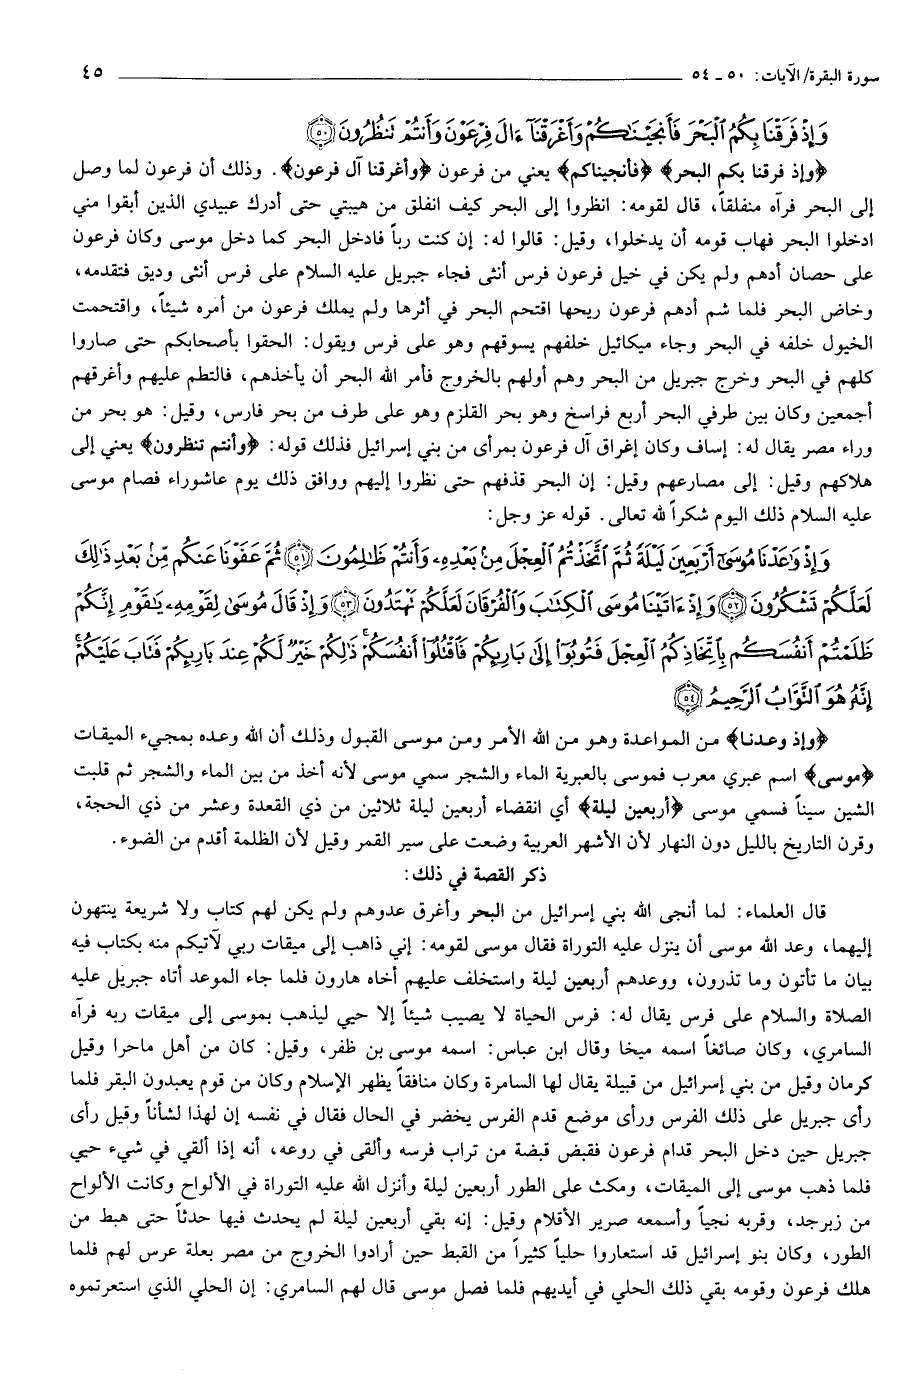 سورة البقرة/ الآيات: ٥٠ ـ ٥٤ ٤٥
وَإِذْ فَرَقْنَا بِكُمُ ٱلْبَحْرَ فَأَنجَيْنَـٰكُمْ وَأَغْرَقْنَآ ءَالَ فِرْعَوْنَ وَأَنتُمْ تَنظُرُونَ ﴿٥٠﴾
﴿وإذ فرقنا بكم البحر﴾ ﴿فأنجيناكم﴾ يعني من فرعون ﴿وأغرقنا آل فرعون﴾. وذلك أن فرعون لما وصل
إلى البحر فرآه منفلقاً، قال لقومه: انظروا إلى البحر كيف انفلق من هيبتي حتى أدرك عبيدي الذين أبقوا مني
ادخلوا البحر فهاب قومه أن يدخلوا، وقيل: قالوا له: إن كنت رباً فادخل البحر كما دخل موسى وكان فرعون
على حصان أدهم ولم يكن في خيل فرعون فرس أنثى فجاء جبريل عليه السلام على فرس أنثى وديق فتقدمه،
وخاض البحر فلما شم أدهم فرعون ريحها اقتحم البحر في أثرها ولم يملك فرعون من أمره شيئاً، واقتحمت
الخيول خلفه في البحر وجاء ميكائيل خلفهم يسوقهم وهو على فرس ويقول: الحقوا بأصحابكم حتى صاروا
كلهم في البحر وخرج جبريل من البحر وهم أولهم بالخروج فأمر الله البحر أن يأخذهم، فالتطم عليهم وأغرقهم
أجمعين وكان بين طرفي البحر أربع فراسخ وهو بحر القلزم وهو على طرف من بحر فارس، وقيل: هو بحر من
وراء مصر يقال له: إساف وكان إغراق آل فرعون بمرأى من بني إسرائيل فذلك قوله: ﴿وأنتم تنظرون﴾ يعني إلى
هلاكهم وقيل: إلى مصارعهم وقيل: إن البحر قذفهم حتى نظروا إليهم ووافق ذلك يوم عاشوراء فصام موسى
عليه السلام ذلك اليوم شكراً لله تعالى. قوله عز وجل:
وَإِذْ وَٰعَدْنَا مُوسَىٰٓ أَرْبَعِينَ لَيْلَةً ثُمَّ ٱتَّخَذْتُمُ ٱلْعِجْلَ مِنۢ بَعْدِهِۦ وَأَنتُمْ ظَـٰلِمُونَ ﴿٥١﴾ ثُمَّ عَفَوْنَا عَنكُم مِّنۢ بَعْدِ ذَٰلِكَ
لَعَلَّكُمْ تَشْكُرُونَ ﴿٥٢﴾ وَإِذْ ءَاتَيْنَا مُوسَى ٱلْكِتَـٰبَ وَٱلْفُرْقَانَ لَعَلَّكُمْ تَهْتَدُونَ ﴿٥٣﴾ وَإِذْ قَالَ مُوسَىٰ لِقَوْمِهِۦ يَـٰقَوْمِ إِنَّكُمْ
ظَلَمْتُمْ أَنفُسَكُم بِٱتِّخَاذِكُمُ ٱلْعِجْلَ فَتُوبُوٓا۟ إِلَىٰ بَارِئِكُمْ فَٱقْتُلُوٓا۟ أَنفُسَكُمْ ذَٰلِكُمْ خَيْرٌ لَّكُمْ عِندَ بَارِئِكُمْ فَتَابَ عَلَيْكُمْ ۚ
إِنَّهُۥ هُوَ ٱلتَّوَّابُ ٱلرَّحِيمُ ﴿٥٤﴾
﴿وإذ وعدنا﴾ من المواعدة وهو من الله الأمر ومن موسى القبول وذلك أن الله وعده بمجيء الميقات
﴿موسى﴾ اسم عبري معرب فموسى بالعبرية الماء والشجر سمي موسى لأنه أخذ من بين الماء والشجر ثم قلبت
الشين سيناً فسمي موسى ﴿أربعين ليلة﴾ أي انقضاء أربعين ليلة ثلاثين من ذي القعدة وعشر من ذي الحجة،
وقرن التاريخ بالليل دون النهار لأن الأشهر العربية وضعت على سير القمر وقيل لأن الظلمة أقدم من الضوء.
ذكر القصة في ذلك:
قال العلماء: لما أنجى الله بني إسرائيل من البحر وأغرق عدوهم ولم يكن لهم كتاب ولا شريعة ينتهون
إليهما، وعد الله موسى أن ينزل عليه التوراة فقال موسى لقومه: إني ذاهب إلى ميقات ربي لآتيكم منه بكتاب فيه
بيان ما تأتون وما تذرون، ووعدهم أربعين ليلة واستخلف عليهم أخاه هارون فلما جاء الموعد أتاه جبريل عليه
الصلاة والسلام على فرس يقال له: فرس الحياة لا يصيب شيئاً إلا حيي ليذهب بموسى إلى ميقات ربه فرآه
السامري، وكان صائغاً اسمه ميخا وقال ابن عباس: اسمه موسى بن ظفر، وقيل: كان من أهل ماحرا وقيل
كرمان وقيل من بني إسرائيل من قبيلة يقال لها السامرة وكان منافقاً يظهر الإسلام وكان من قوم يعبدون البقر فلما
رأى جبريل على ذلك الفرس ورأى موضع قدم الفرس يخضر في الحال فقال في نفسه إن لهذا لشأناً وقيل رأى
جبريل حين دخل البحر قدام فرعون فقبض قبضة من تراب فرسه وألقى في روعه، أنه إذا ألقي في شيء حيي
فلما ذهب موسى إلى الميقات، ومكث على الطور أربعين ليلة وأنزل الله عليه التوراة في الألواح وكانت الألواح
من زبرجد، وقربه نجياً وأسمعه صرير الأقلام وقيل: إنه بقي أربعين ليلة لم يحدث فيها حدثاً حتى هبط من
الطور، وكان بنو إسرائيل قد استعاروا حلياً كثيراً من القبط حين أرادوا الخروج من مصر بعلة عرس لهم فلما
هلك فرعون وقومه بقي ذلك الحلي في أيديهم فلما فصل موسى قال لهم السامري: إن الحلي الذي استعرتموه